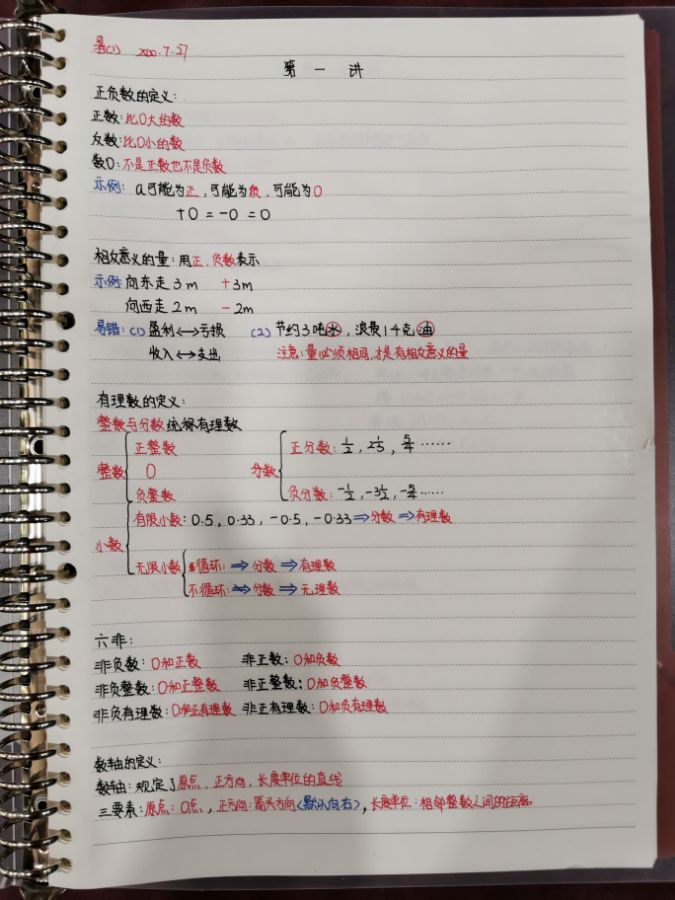 暑(1) 2020.7.27
第一讲
正负数的定义:
正数:比0大的数
负数:比0小的数
数0:不是正数也不是负数
示例: a可能为正,可能为负,可能为0
+0=-0=0
相反意义的量:用正,负数表示
示例:向东走3m +3m
向西走2m -2m
易错:(1)盈利⟷亏损 (2)节约3吨水,浪费14克油
收入⟷支出 注意:量必须相同,才是有相反意义的量
有理数的定义:
整数与分数统称有理数
整数 正整数 0 负整数
分数 正分数: 1/2, 2 1/3, 5/4 ……
负分数: -1/2, -3 1/2, -5/4 ……
小数 有限小数:0.5, 0.33, -0.5, -0.33⇒分数⇒有理数
无限小数 循环:⇒分数⇒有理数
不循环:⇏分数⇒无理数
六非:
非负数:0和正数 非正数:0和负数
非负整数:0和正整数 非正整数:0和负整数
非负有理数:0和正有理数 非正有理数:0和负有理数
数轴的定义:
数轴:规定了原点,正方向,长度单位的直线
三要素:原点:0点,正方向:箭头方向(默认向右),长度单位:相邻整数之间的距离